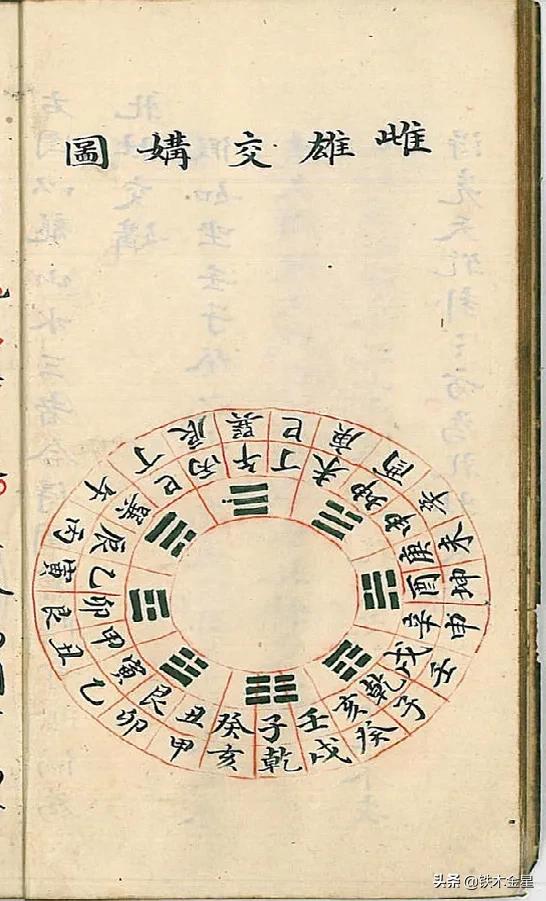 雌雄交媾圖
巽巳庚酉未坤申壬子癸戌乾亥甲卯乙丑艮寅丙午丁辰
午丁未坤申庚酉辛戌乾亥壬子癸丑艮寅甲卯乙辰巽巳丙
头条 @铁木金星